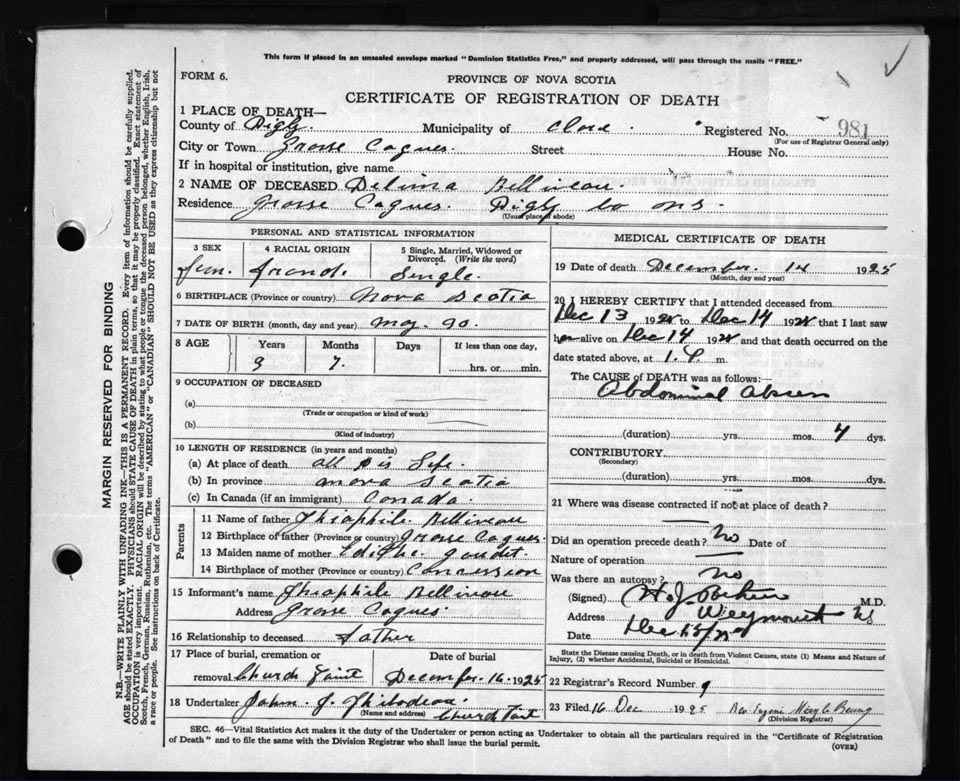 This form if placed in an unsealed envelope marked "Dominion Statistics Free," and properly addressed, will pass through the mails "FREE."
FORM 6.
PROVINCE OF NOVA SCOTIA
CERTIFICATE OF REGISTRATION OF DEATH
1 PLACE OF DEATH—
County of Digby. Municipality of Clare. Registered No. 981
(For use of Registrar General only)
City or Town Grosse Coques. Street House No.
If in hospital or institution, give name
2 NAME OF DECEASED Delima Bellineau.
Residence Grosse Coques. Digby Co N.S.
(Usual place of abode)
PERSONAL AND STATISTICAL INFORMATION
3 SEX
4 RACIAL ORIGIN
5 Single, Married, Widowed or Divorced. (Write the word)
Fem. French. Single.
6 BIRTHPLACE (Province or country) Nova Scotia
7 DATE OF BIRTH (month, day and year) May. 90.
8 AGE Years Months Days If less than one day,
9 7.
hrs. or min.
9 OCCUPATION OF DECEASED
(a)
(Trade or occupation or kind of work)
(b)
(Kind of industry)
10 LENGTH OF RESIDENCE (in years and months)
(a) At place of death all his Life.
(b) In province Nova Scotia
(c) In Canada (if an immigrant) Canada.
Parents
11 Name of father Thiaphile Bellineau
12 Birthplace of father (Province or country) Grosse Coques.
13 Maiden name of mother Edithe Goudet.
14 Birthplace of mother (Province or country) Concession
15 Informant's name Thiaphile Bellineau
Address Grosse Coques
16 Relationship to deceased Father
17 Place of burial, cremation or removal Church Point
Date of burial December. 16. 1925
18 Undertaker John. J. Thibodeau.
(Name and address) Church Point
MEDICAL CERTIFICATE OF DEATH
19 Date of death December. 14 1925
(Month, day and year)
20 I HEREBY CERTIFY that I attended deceased from
Dec 13 192 to Dec 14 192 that I last saw
her alive on Dec 14 192 and that death occurred on the
date stated above, at 1. P. m.
The CAUSE of DEATH was as follows:—
Abdominal Abscess
(duration) yrs. mos. 4 dys.
CONTRIBUTORY
(Secondary)
(duration) yrs. mos. dys.
21 Where was disease contracted if not at place of death?
Did an operation precede death? No Date of
Nature of operation
Was there an autopsy? no
(Signed) M.D.
Address Weymouth NS
Date Dec 15/25
State the Disease causing Death, or in death from Violent Causes, state (1) Means and Nature of Injury, (2) whether Accidental, Suicidal or Homicidal.
22 Registrar's Record Number 9
23 Filed 16 Dec 1925
(Division Registrar)
SEC. 46—Vital Statistics Act makes it the duty of the Undertaker or person acting as Undertaker to obtain all the particulars required in the "Certificate of Registration
of Death" and to file the same with the Division Registrar who shall issue the burial permit. (OVER)
MARGIN RESERVED FOR BINDING
N.B.—WRITE PLAINLY WITH UNFADING INK—THIS IS A PERMANENT RECORD. Every item of information should be carefully supplied.
AGE should be stated EXACTLY. PHYSICIANS should STATE CAUSE OF DEATH in plain terms, so that it may be properly classified. Exact statement of
OCCUPATION is very important. RACIAL ORIGIN will be described by stating to what people or tongue the deceased person belonged, whether English, Irish,
Scotch, French, German, Russian, Ruthenian, etc. The terms "AMERICAN" or "CANADIAN" SHOULD NOT BE USED as they express citizenship but not
a race or people. See instructions on back of Certificate.